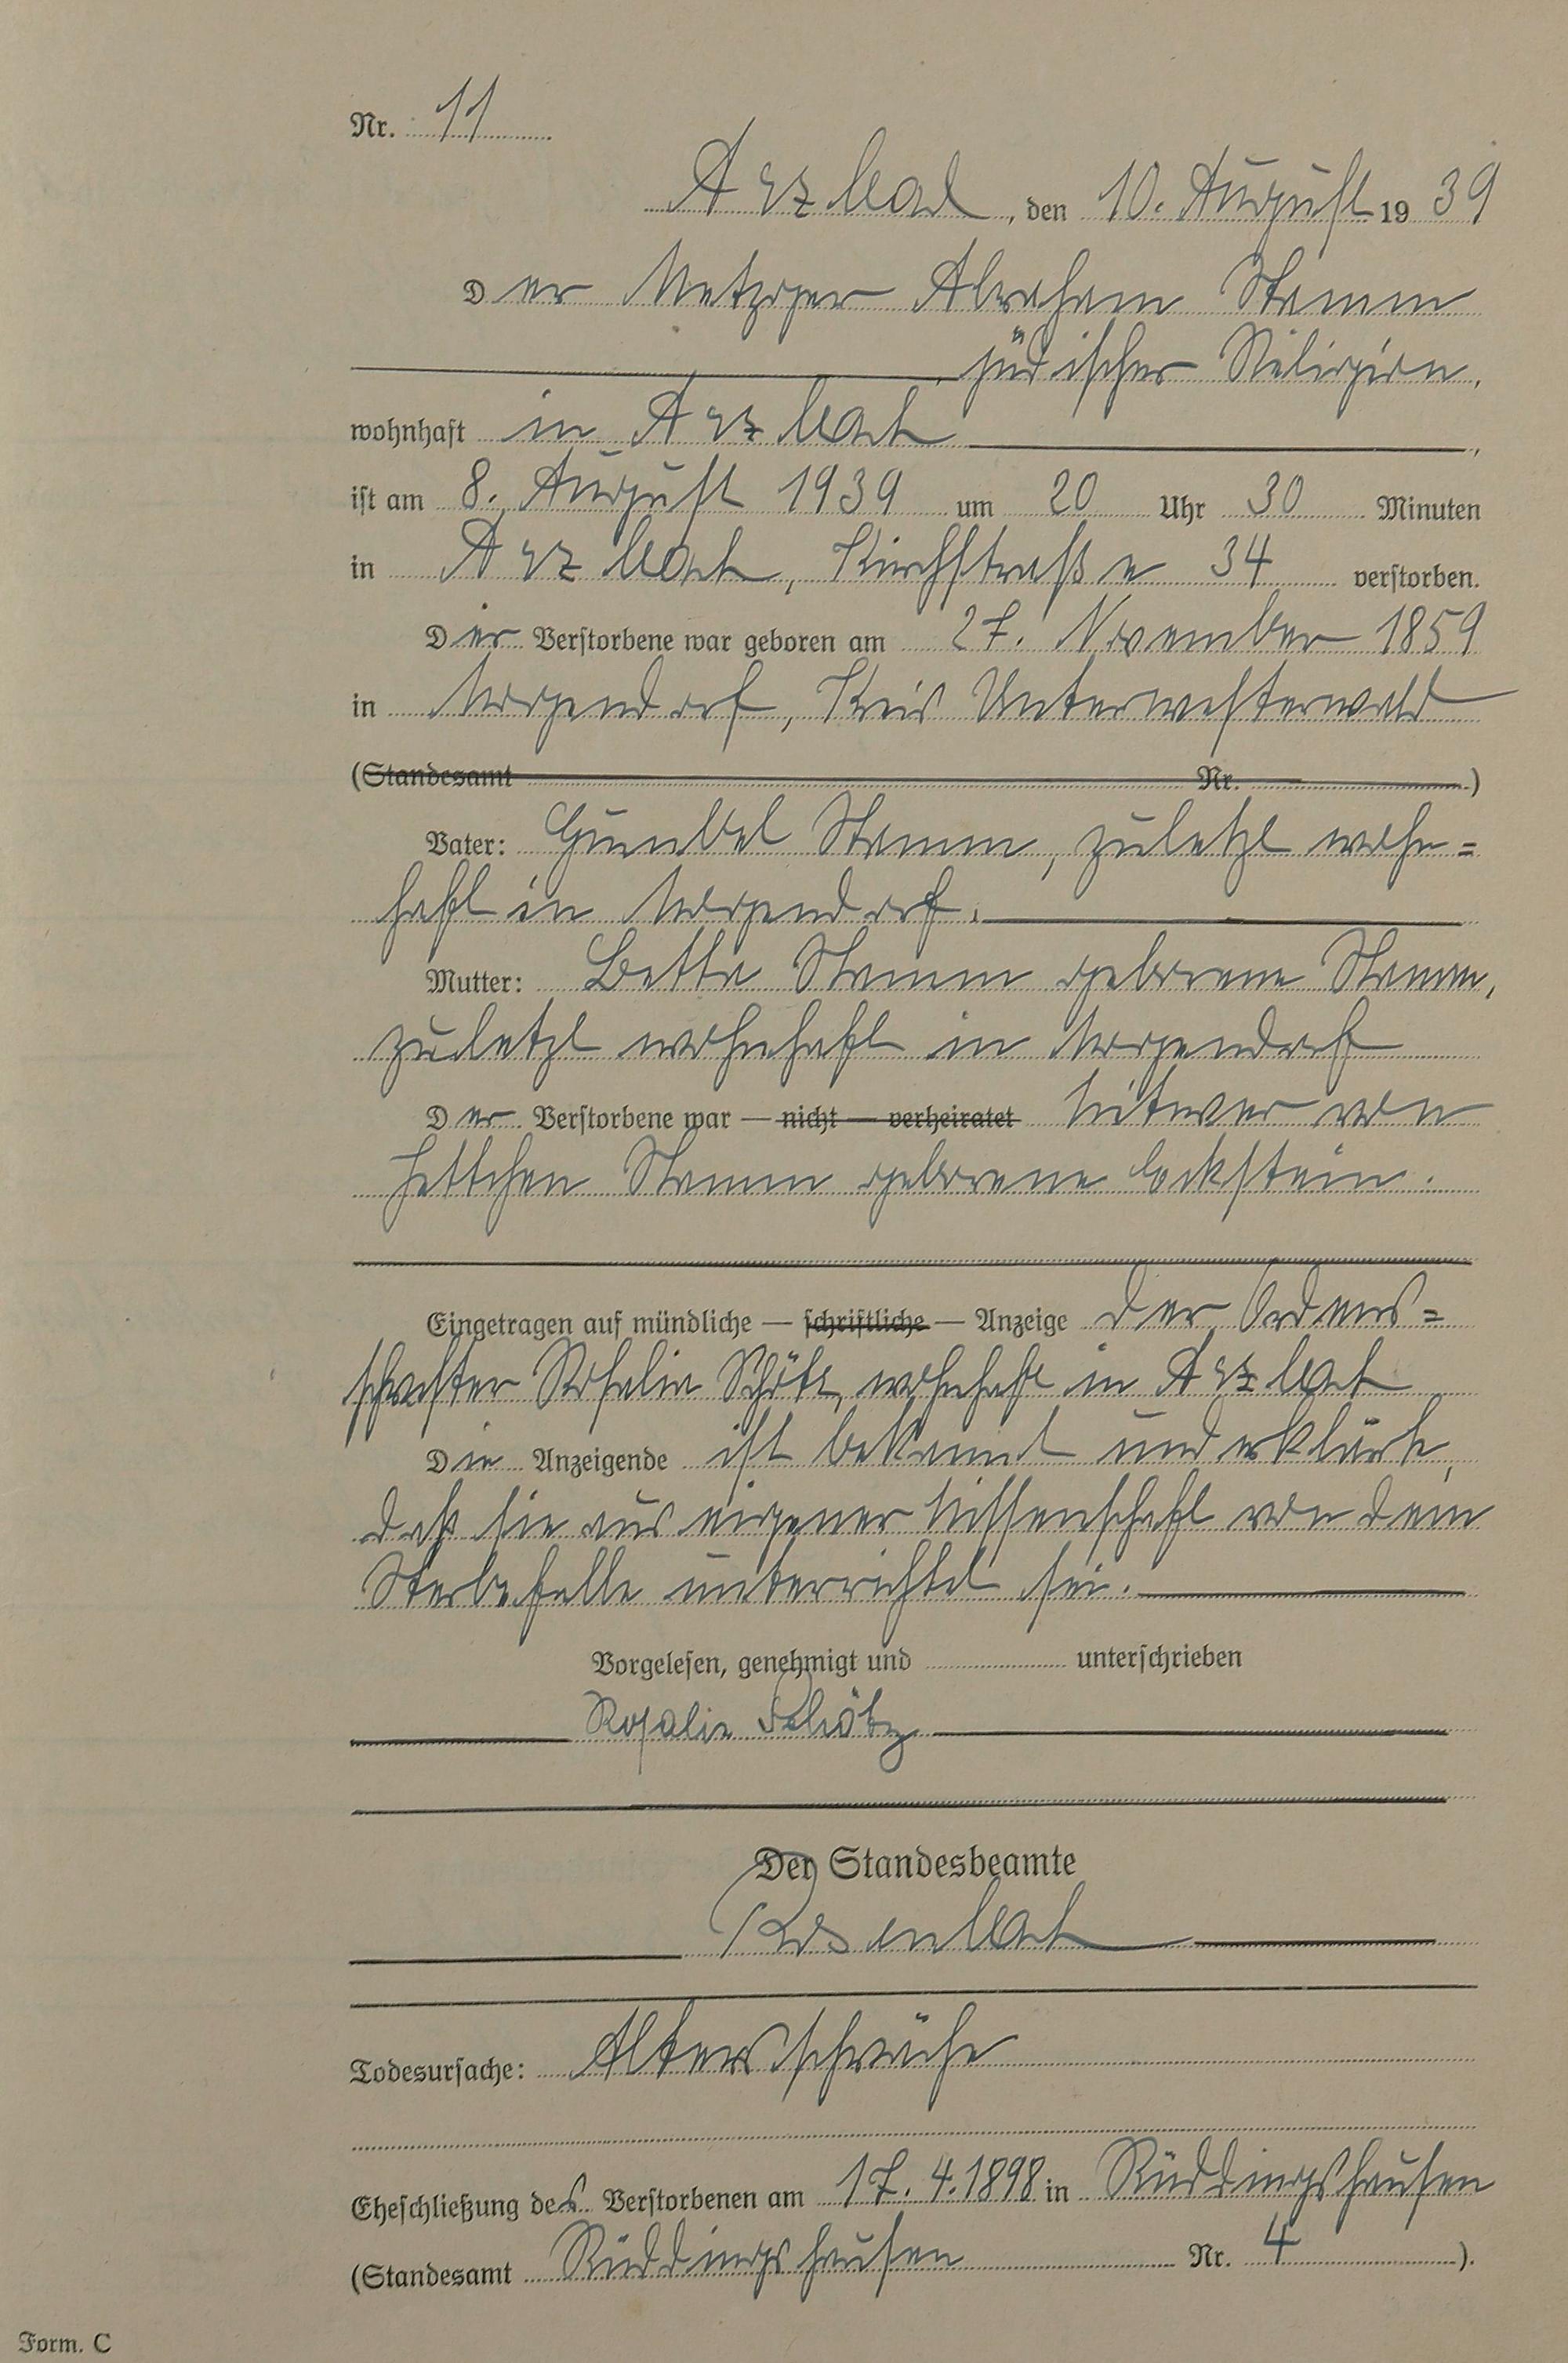 Nr. 11
Arzbach, den 10. August 1939
Der Metzger Abraham Stamm
jüdischer Religion,
wohnhaft in Arzbach,
ist am 8. August 1939 um 20 Uhr 30 Minuten
in Arzbach, Kirchstraße 34 verstorben.
Der Verstorbene war geboren am 27. November 1859
in Mogendorf, Kreis Unterwesterwald
(Standesamt Nr. )
Vater: Gumbel Stamm, zuletzt wohn=
haft in Mogendorf.
Mutter: Bette Stamm geborene Stamm,
zuletzt wohnhaft in Mogendorf
Der Verstorbene war — nicht — verheiratet Witwer von
Jettchen Stamm geborene Eckstein.
Eingetragen auf mündliche — schriftliche — Anzeige der Ordens=
schwester Rosalia Schötz, wohnhaft in Arzbach
Die Anzeigende ist bekannt und erklärte,
daß sie aus eigener Wissenschaft von dem
Sterbefalle unterrichtet sei.
Vorgelesen, genehmigt und unterschrieben
Rosalia Schötz
Der Standesbeamte
Rosenbach
Todesursache: Altersschwäche
Eheschließung des Verstorbenen am 17.4.1898 in Rüddingshausen
(Standesamt Rüddingshausen Nr. 4 ).
Form. C